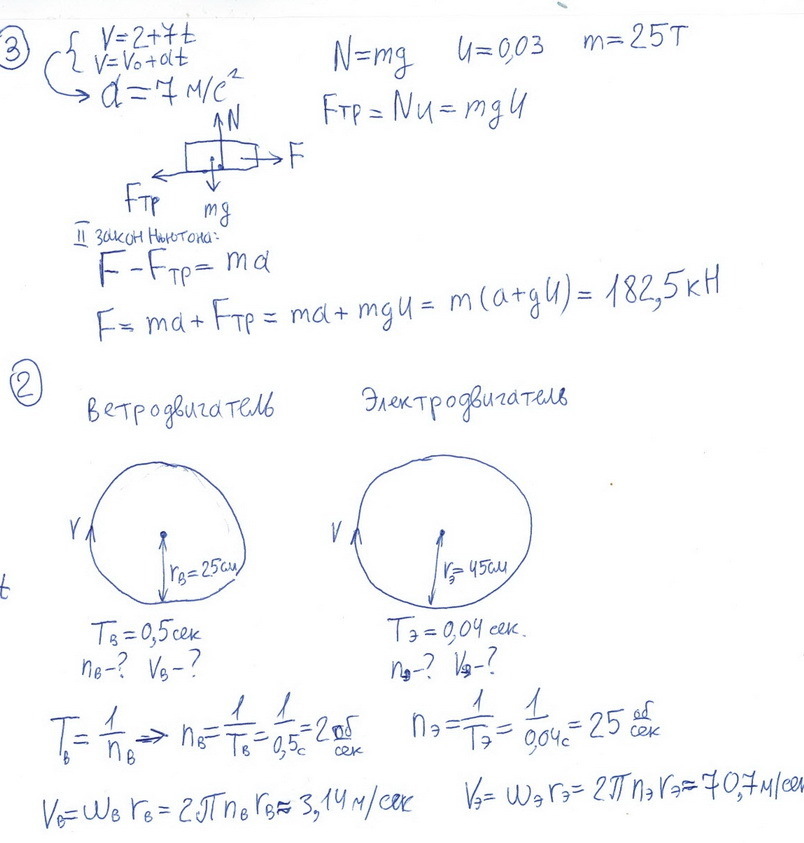 3
V=2+7t
V=V₀+at
a=7 м/с²
N=mg  u=0,03  m=25Т
Fтр=Nu=mgu
N
F
Fтр
mg
II закон Ньютона:
F-Fтр=ma
F=ma+Fтр=ma+mgu=m(a+gu)=182,5кН
2
Ветродвигатель  Электродвигатель
V  V
rв=25см  rэ=45см
t
Tв=0,5сек  Tэ=0,04 сек.
nв-? Vв-?  nэ-? Vэ-?
Tв=1/nв → nв=1/Tв=1/0,5с=2 об/сек  nэ=1/Tэ=1/0,04с=25 об/сек
Vв=ωв rв=2πnв rв≈3,14м/сек  Vэ=ωэ rэ=2πnэ rэ≈70,7м/сек